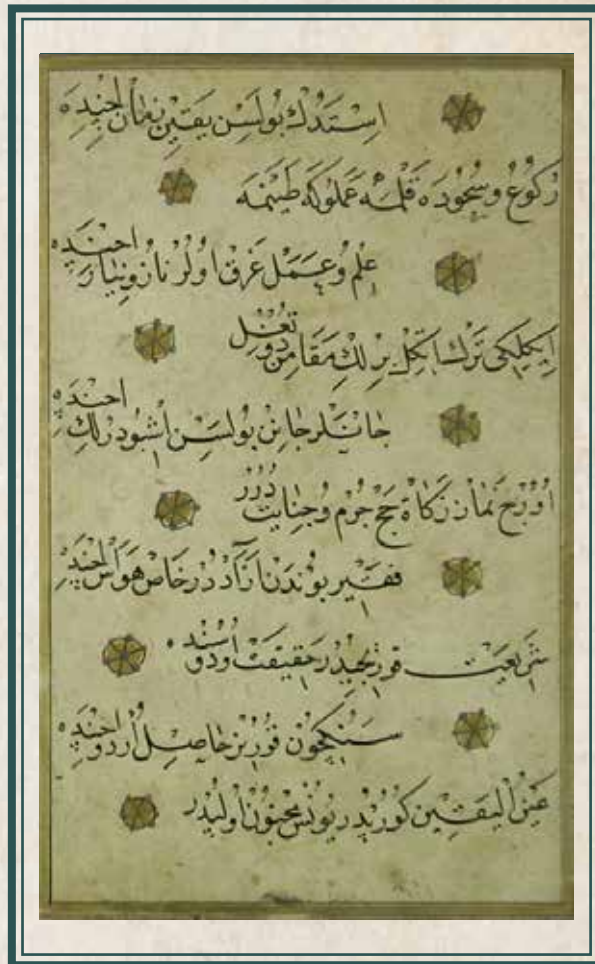 استدك بولسن يقين نهان اچنده
ركوع و سجوده قلمه عملوكه طينمه
علم و عمل غرق اولر ناز و نياز اچنده
ايكيلكى ترك اتكل برلك مقامن دوتغل
جانلر جانن بولسن اشبو درلك اچنده
اورج نماز زكاة حج جرم و جنايت دورر
فقير بوندن آزاد در خاص هواس اچنده
شريعت قورنجيدر حقيقت اودوسنده
سنكچون قورنر حاصل اردو اچنده
عين اليقين كورنپدر يونس مجنون اولپدر